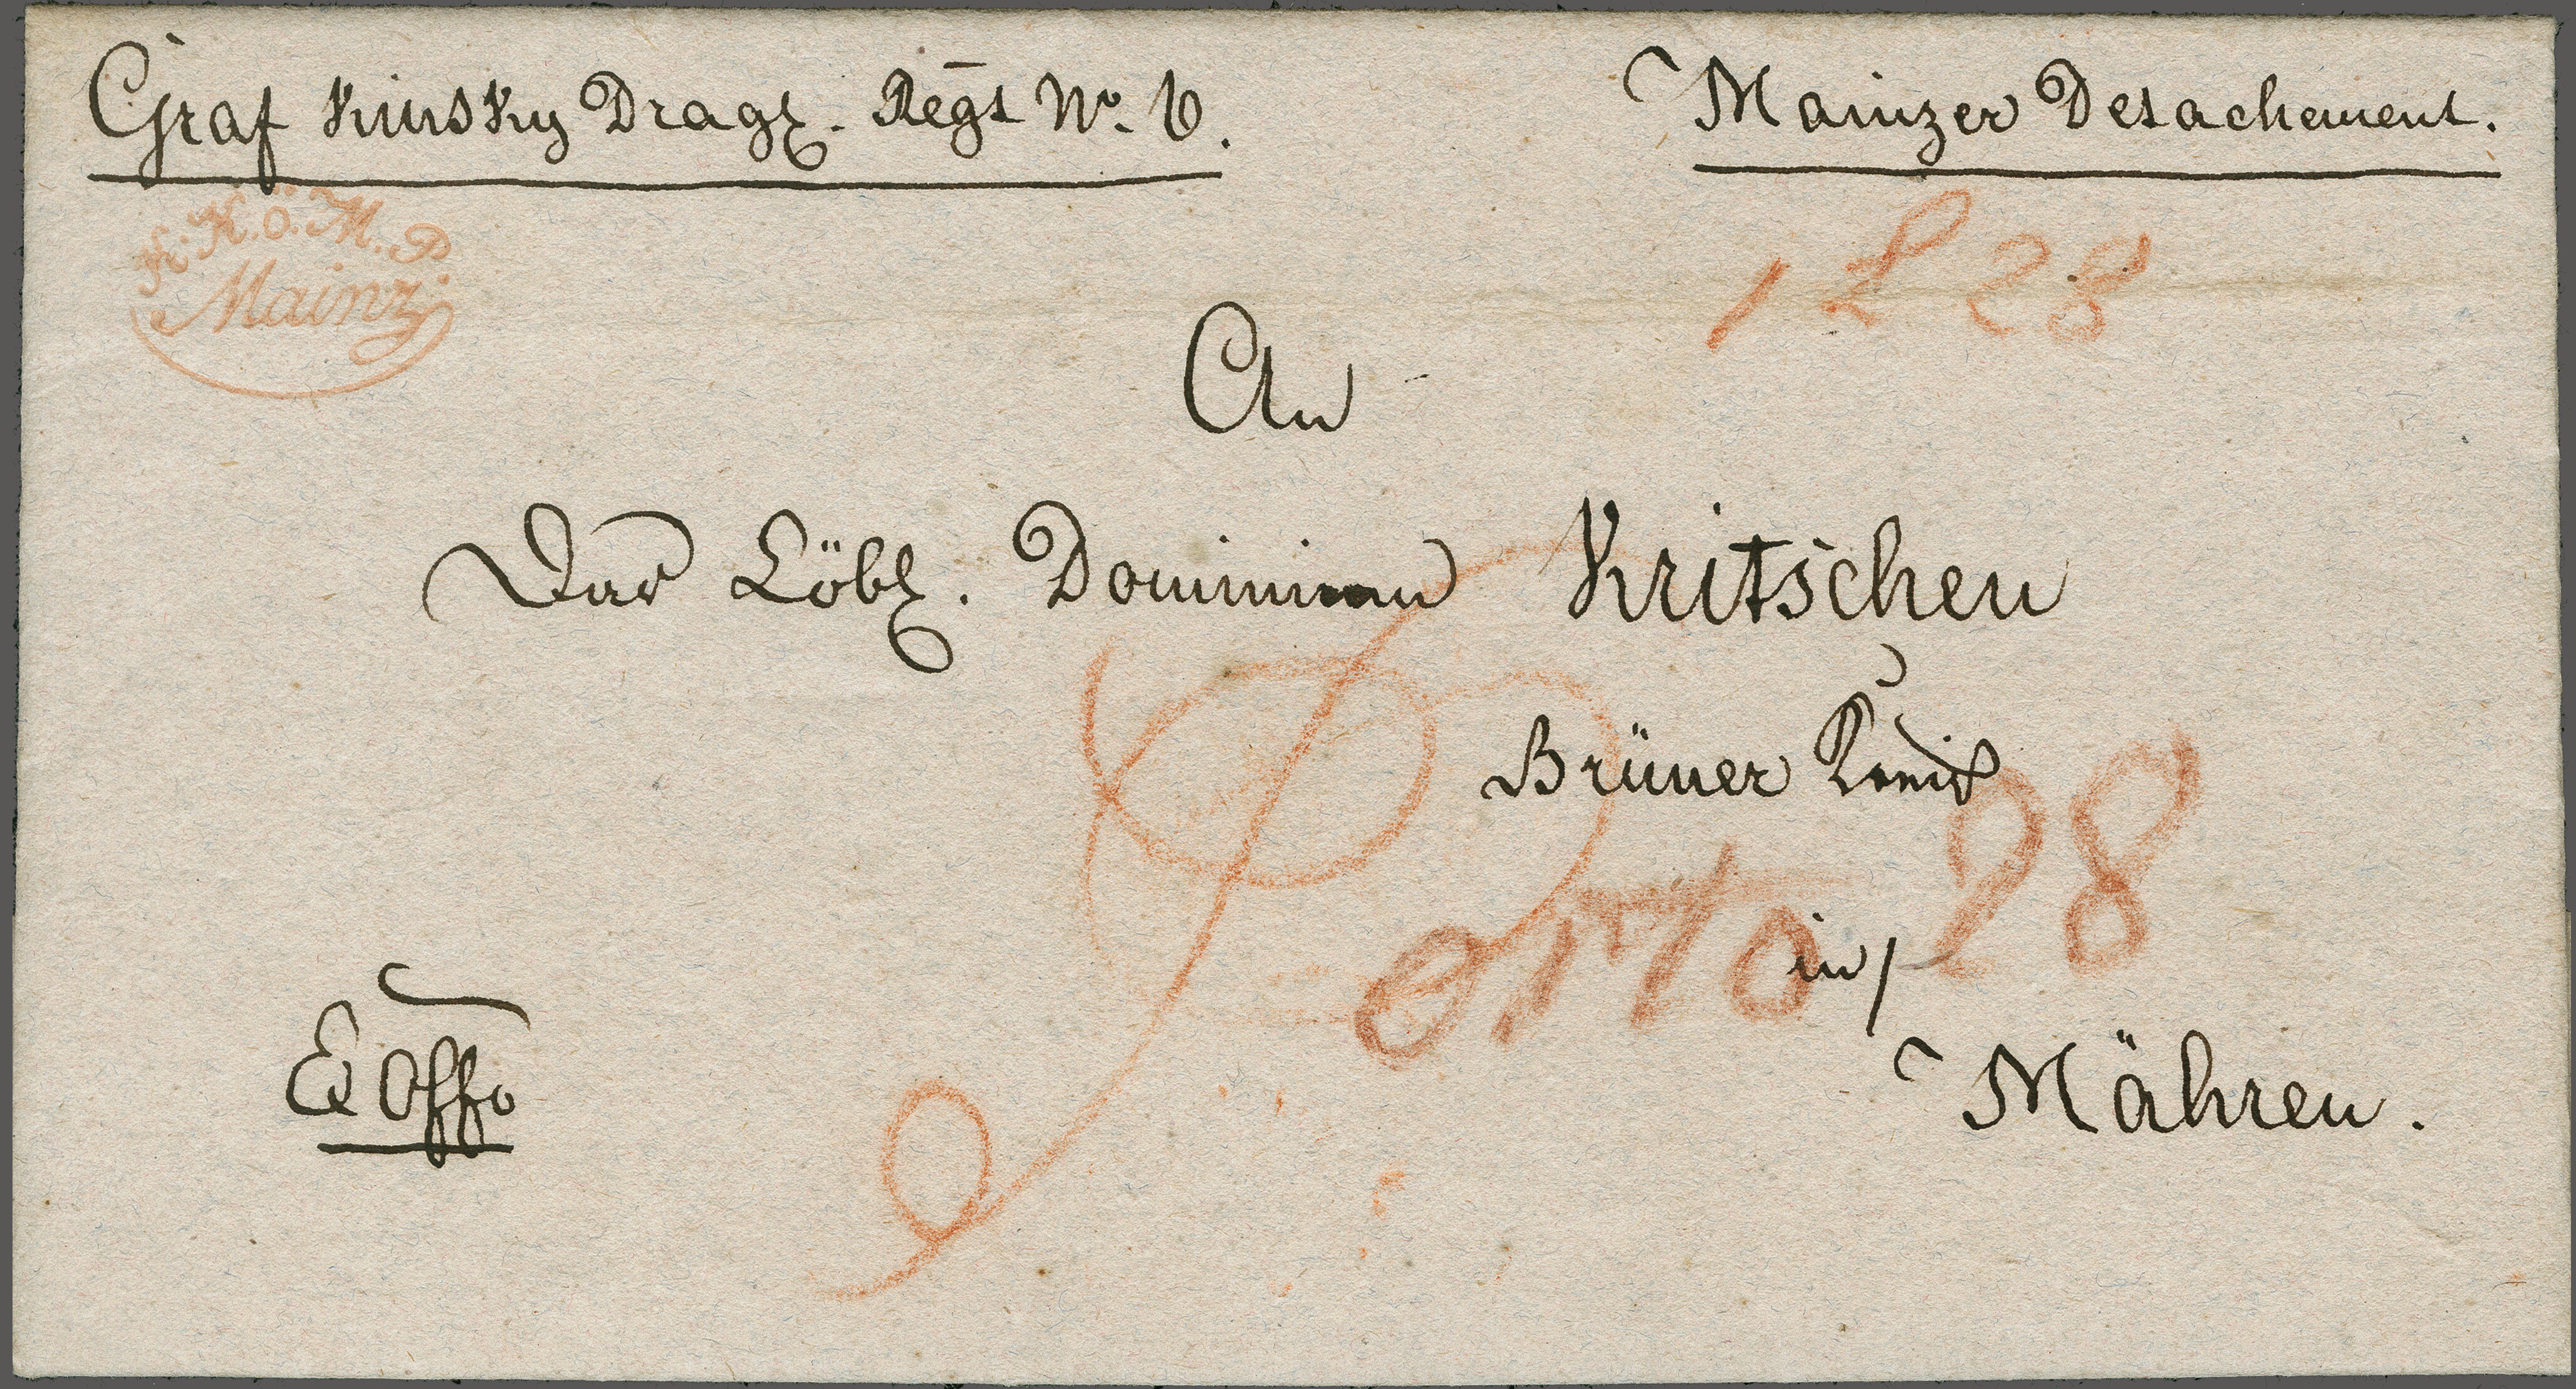 Graf Kinsky Drag. Regt No. 6.
Mainzer Detachement.
K: K. ö. M. P.
Mainz.
1 L 28
An
Das Löbl. Dominium Kritschen
Brüner Kreis
Porto 28
in/
Mähren.
Ex Offo